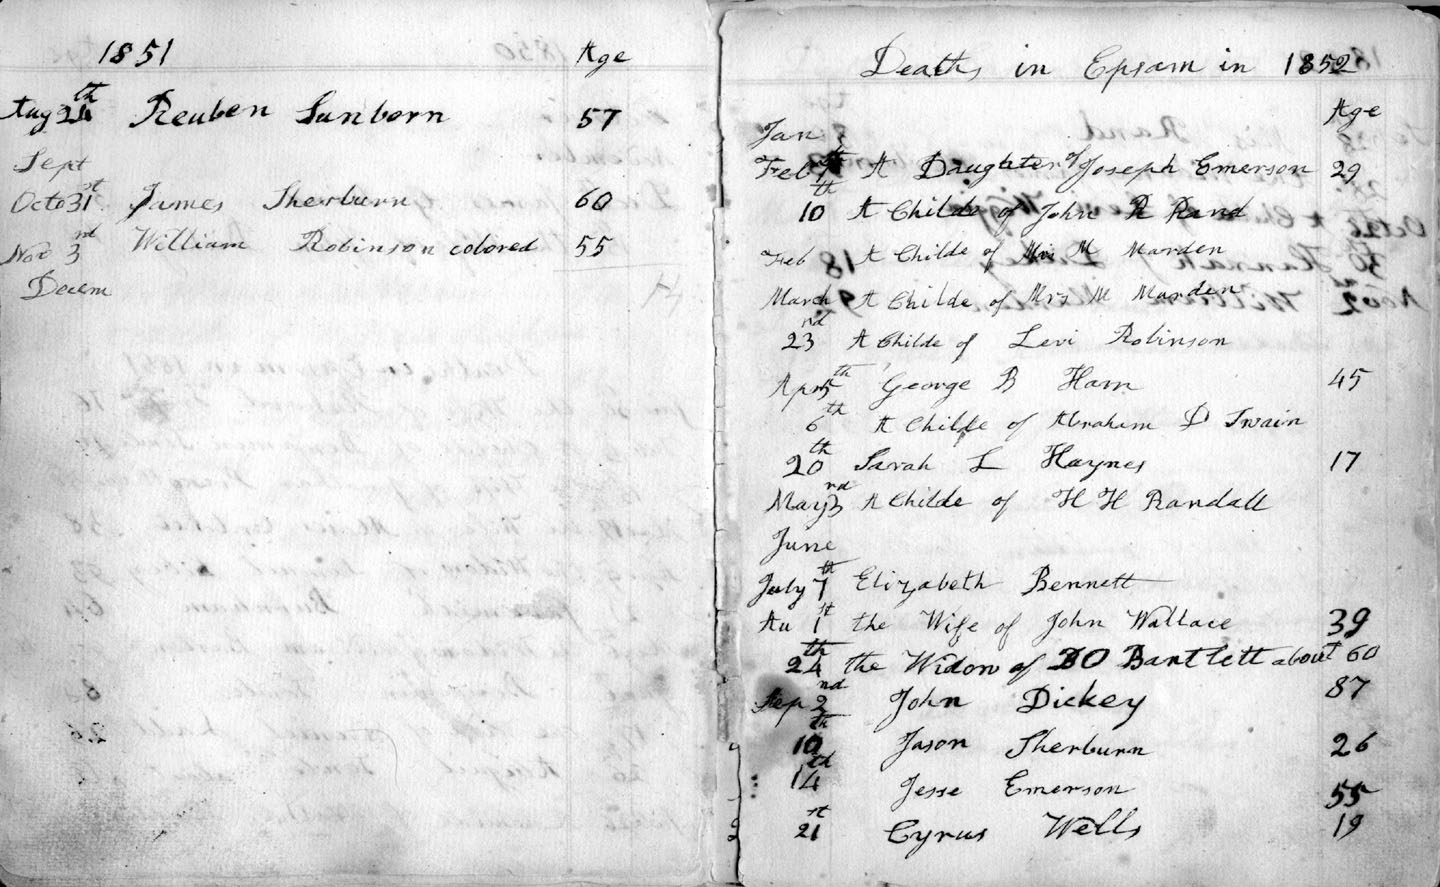 1851 Age
Aug 24th Reuben Sanborn 57
Sept
Octo 31st James Sherburn 60
Nov 3rd William Robinson colored 55
Decem
14
Deaths in Epsam in 1852
Age
Jan
Feb 7th A Daughter of Joseph Emerson 29
10th A Childe of John R Rand
Feb A Childe of Mrs M Marden
March A Childe of Mrs M Marden
23rd A Childe of Levi Robinson
Apr 5th George B Ham 45
6th A Childe of Abraham D Swain
20th Sarah L Haynes 17
May 3rd A Childe of H H Randall
June
July 7th Elizabeth Bennett
Au 1st the Wife of John Wallace 39
24th the Widow of DO Bartlett about 60
Sep 2nd John Dickey 87
10th Jason Sherburn 26
14th Jesse Emerson 55
21st Cyrus Wells 19